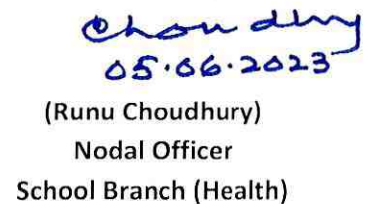 Choudhury
05.06.2023
(Runu Choudhury)
Nodal Officer
School Branch (Health)